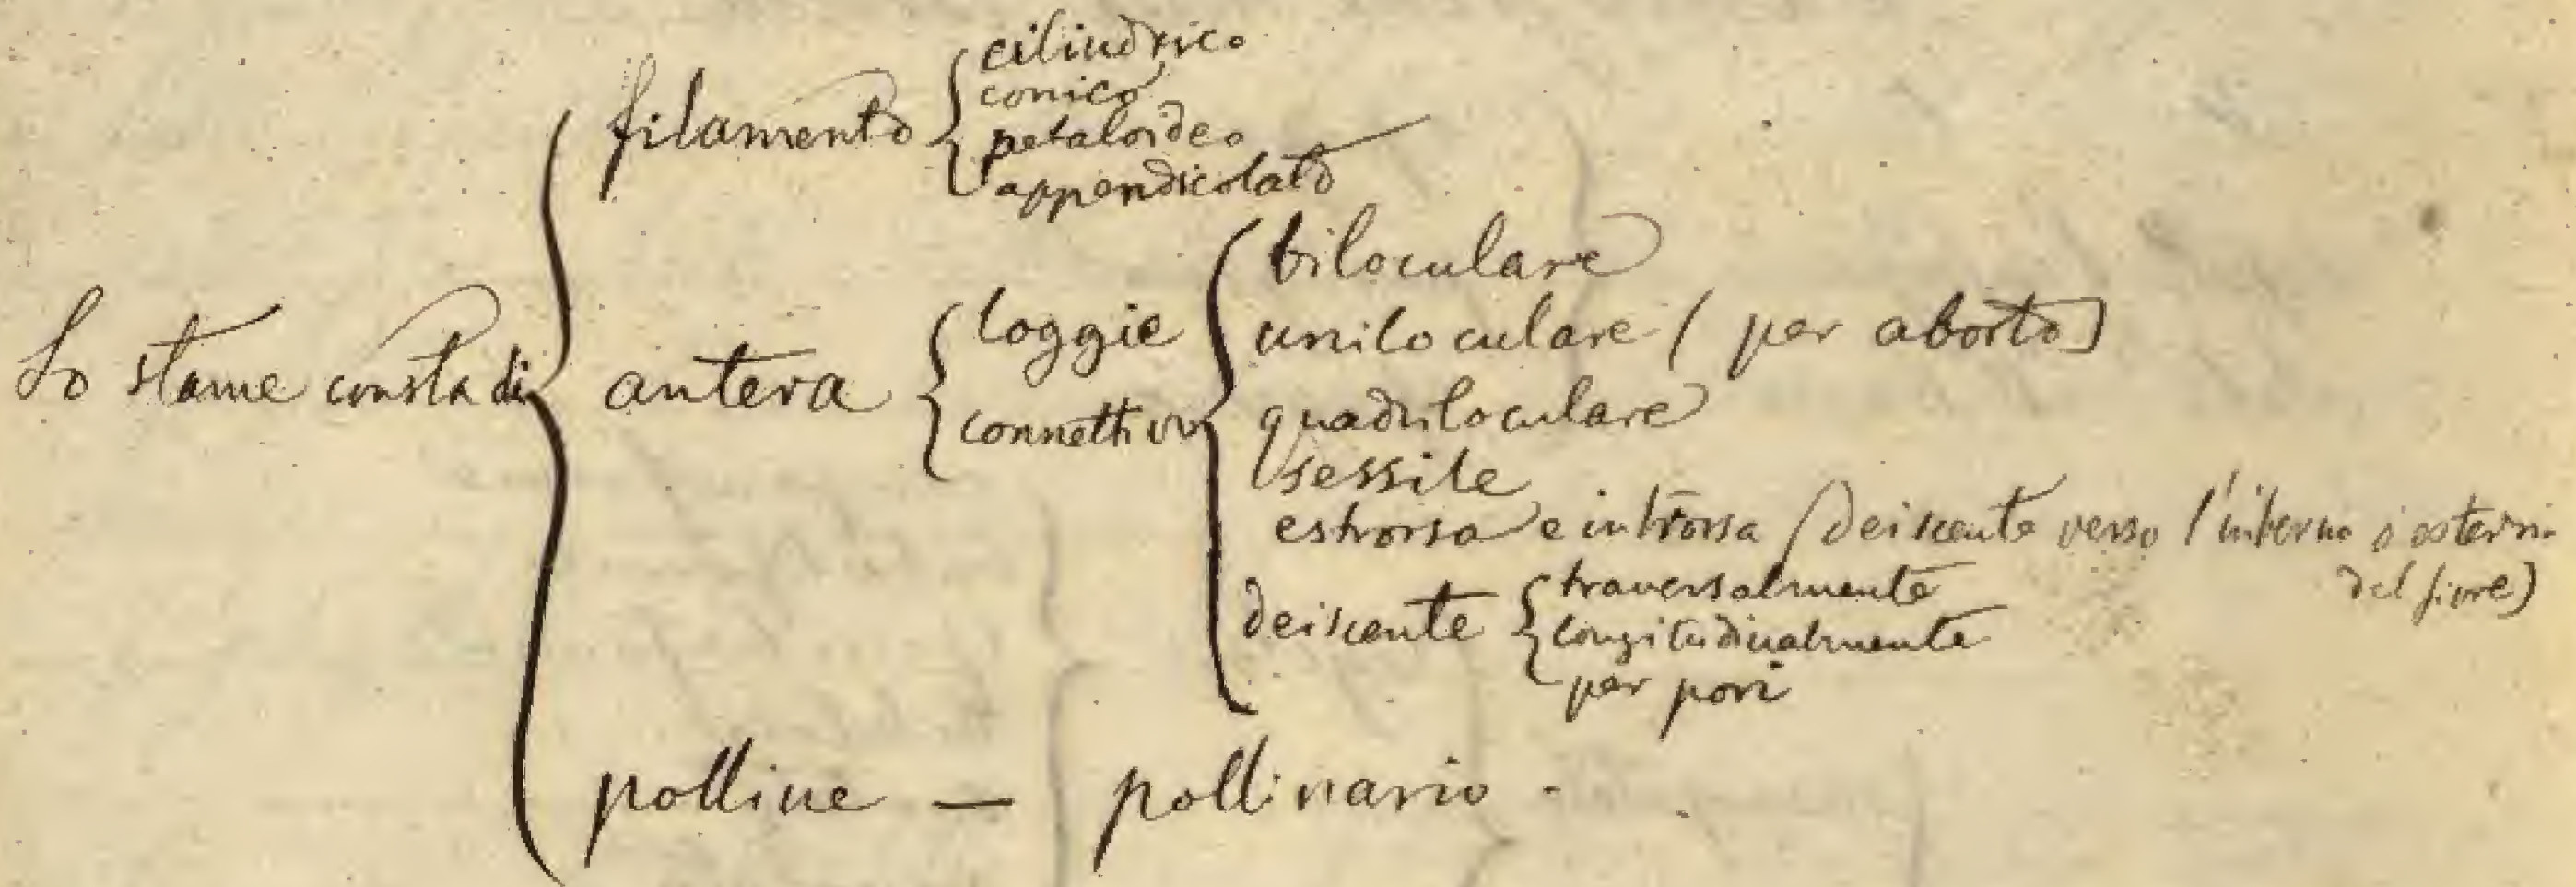 filamento
cilindrico
conico
petaloideo
appendicolato
Lo stame consta di
antera
loggie
connettivo
biloculare
uniloculare (per aborto)
quadriloculare
sessile
estrorsa e introrsa (deiscente verso l'interno o esterno
del fiore)
deiscente
traversalmente
longitudinalmente
per pori
polline — pollinario -